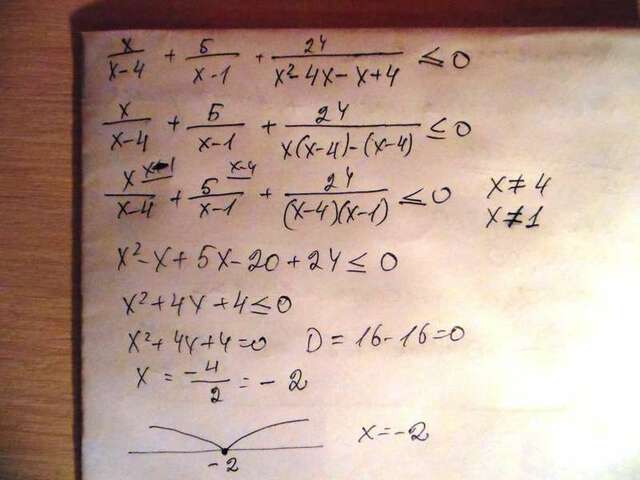 x/(x-4) + 5/(x-1) + 24/(x²-4x-x+4) ≤ 0
x/(x-4) + 5/(x-1) + 24/(x(x-4)-(x-4)) ≤ 0
x^(x-1)/(x-4) + 5^(x-4)/(x-1) + 24/((x-4)(x-1)) ≤ 0 x≠4
x≠1
x²-x+5x-20+24≤0
x²+4x+4≤0
x²+4x+4=0 D=16-16=0
x=-4/2=-2
x=-2
-2